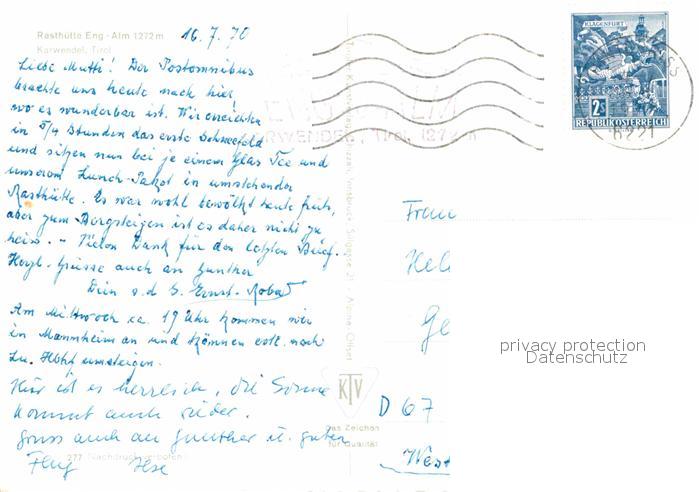 Rasthütte Eng - Alm 1272 m
Karwendel, Tirol
16.7.70
Liebe Mutti! Der Postomnibus
brachte uns heute nach hier
wo es wunderbar ist. Wir erreichten
in 5/4 Stunden das erste Schneefeld
und sitzen nun bei je einem Glas Tee und
unserem Lunch-Paket in umstehender
Rasthütte. Es war wohl bewölkt heute früh,
aber zum Bergsteigen ist es daher nicht zu
heiss. - Vielen Dank für den letzten Brief.
Herzl. Grüsse auch an Gunther
Dein Ernst-Robert
Am Mittwoch ca. 19 Uhr kommen wir
in Mannheim an und können evtl. nach
Lu. Hbhf umsteigen.
Hier ist es herrlich, die Sonne
kommt auch wieder.
Gruss auch an Gunther u. guten
Flug Ilse
277 Nachdruck verboten
KTV
Das Zeichen
für Qualität
KLAGENFURT
2S
REPUBLIK ÖSTERREICH
ENG ALM
KARWENDEL, Tirol, 1272 m
6221
Frau
Hel
Ge
D 67
West
privacy protection
Datenschutz